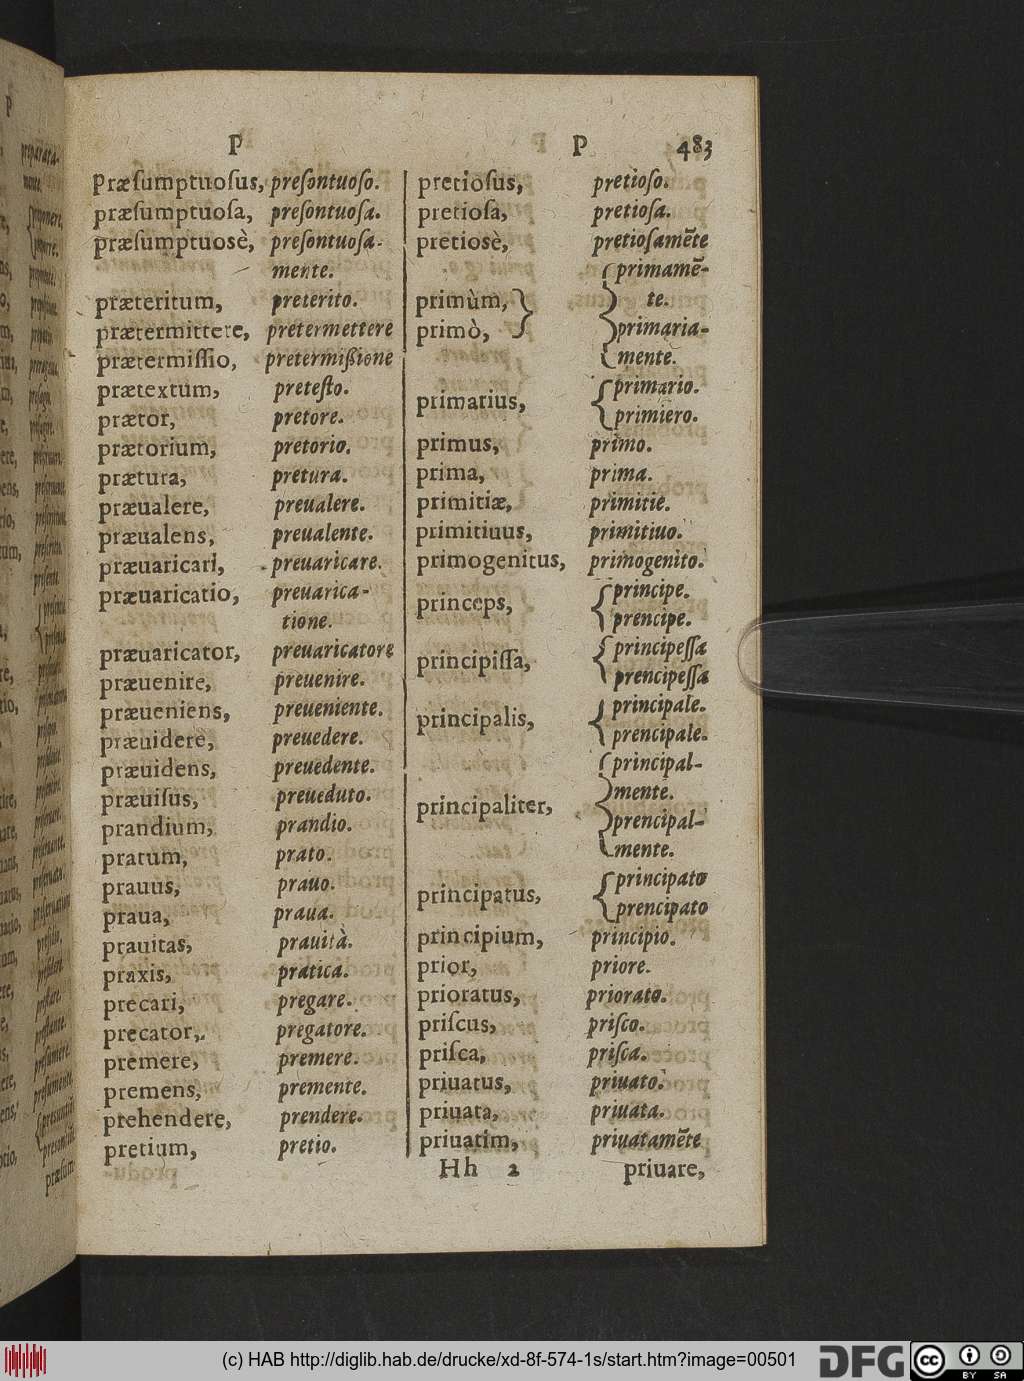 P P 483
Præſumptuoſus, preſontuoſo.
præſumptuoſa, preſontuoſa.
præſumptuosè, preſontuoſa-
mente.
præteritum, preterito.
prætermittere, pretermettere
prætermiſſio, pretermißione
prætextum, preteſto.
prætor, pretore.
prætorium, pretorio.
prætura, pretura.
præualere, preualere.
præualens, preualente.
præuaricari, preuaricare.
præuaricatio, preuarica-
tione.
præuaricator, preuaricatore
præuenire, preuenire.
præueniens, preueniente.
præuidere, preuedere.
præuidens, preuedente.
præuiſus, preueduto.
prandium, prandio.
pratum, prato.
prauus, prauo.
praua, praua.
prauitas, prauità.
praxis, pratica.
precari, pregare.
precator, pregatore.
premere, premere.
premens, premente.
prehendere, prendere.
pretium, pretio.
pretioſus, pretioſo.
pretioſa, pretioſa.
pretiosè, pretioſamẽte
primùm, primò, { primamẽ-
te.
primaria-
mente.
primarius, { primario.
primiero.
primus, primo.
prima, prima.
primitiæ, primitie.
primitiuus, primitiuo.
primogenitus, primogenito.
princeps, { principe.
prencipe.
principiſſa, { principeſſa
prencipeſſa
principalis, { principale.
prencipale.
principaliter, { principal-
mente.
prencipal-
mente.
principatus, { principato
prencipato
principium, principio.
prior, priore.
prioratus, priorato.
priſcus, priſco.
priſca, priſca.
priuatus, priuato.
priuata, priuata.
priuatim, priuatamẽte
Hh 2 priuare,
(c) HAB http://diglib.hab.de/drucke/xd-8f-574-1s/start.htm?image=00501
DFG cc BY SA